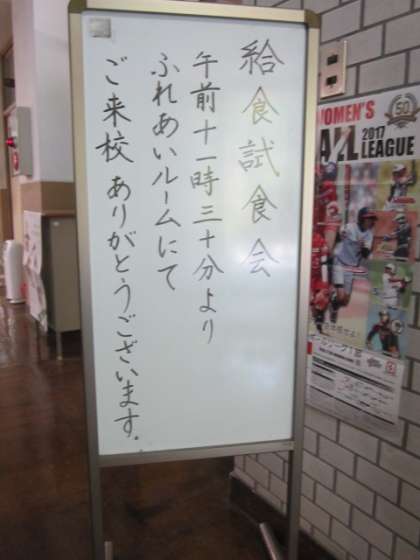 給食試食会
午前十一時三十分より
ふれあいルームにて
ご来校ありがとうございます。
WOMEN'S
50
2017
LEAGUE